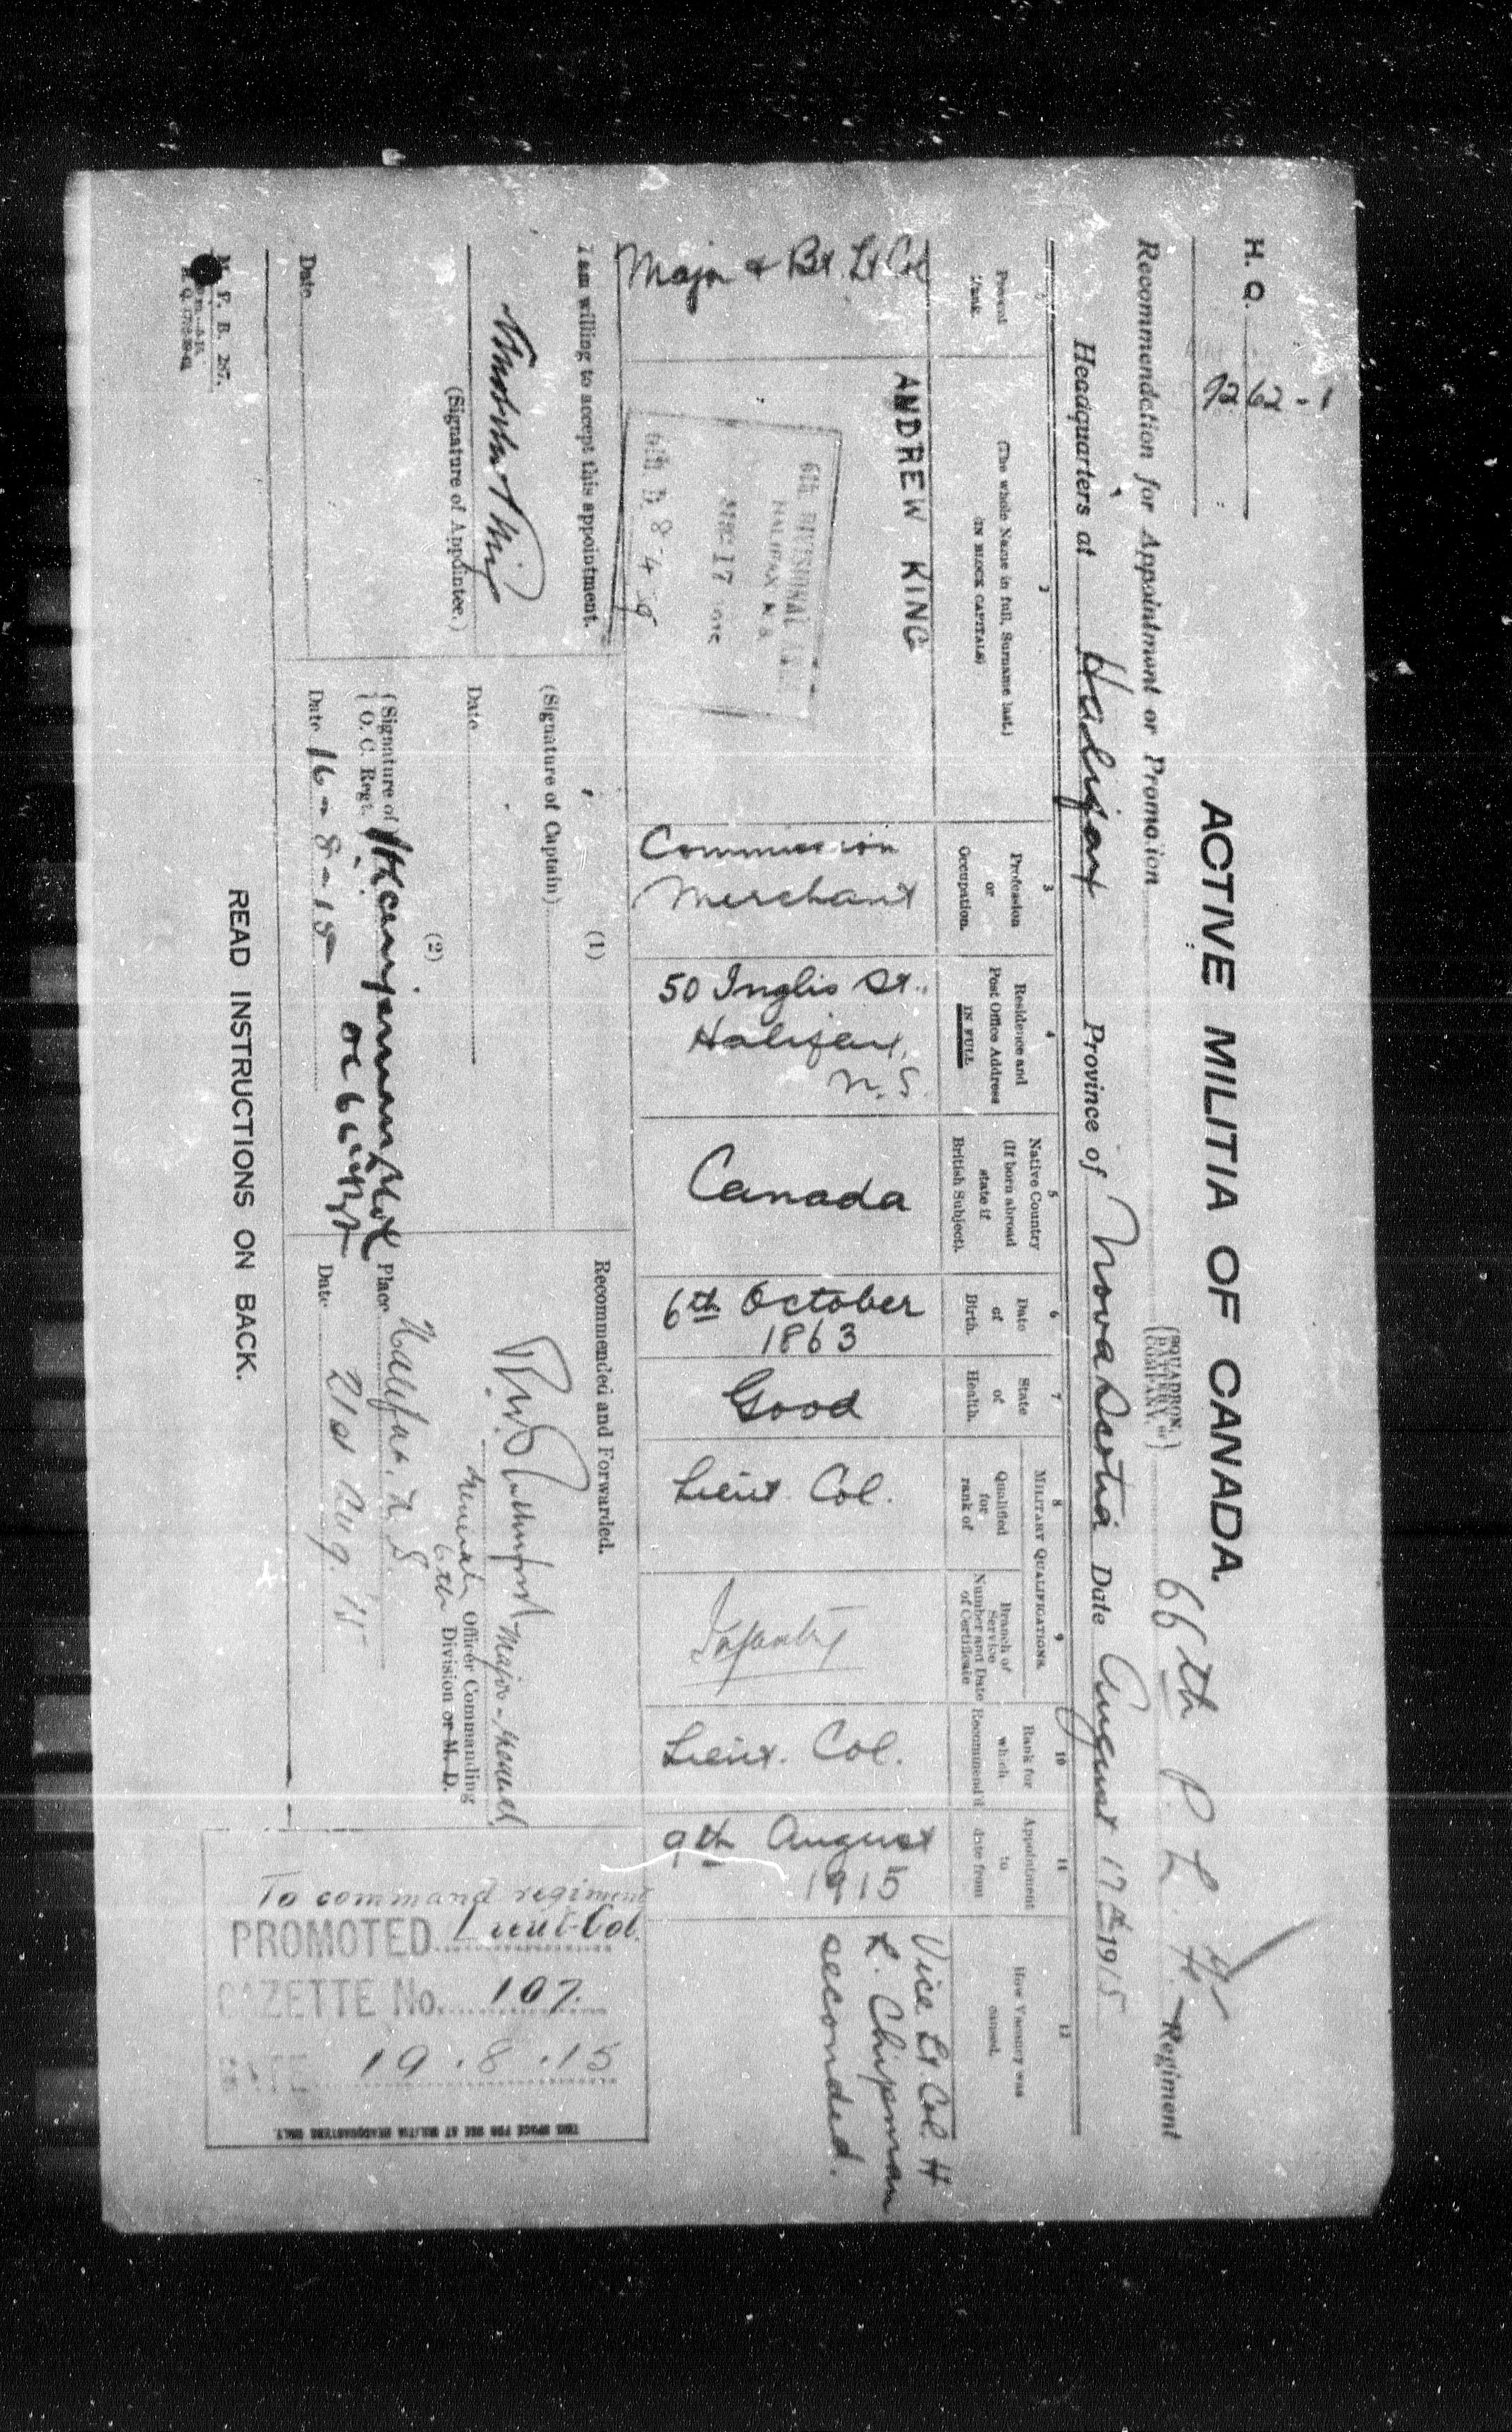 H. Q. 7262-1
ACTIVE MILITIA OF CANADA.
Recommendation for Appointment or Promotion
{SQUADRON, BATTERY, or COMPANY.} 66th P. L. F. Regiment
Headquarters at Halifax Province of Nova Scotia Date August 17th 1915
Present Rank.
2
(The whole Name in full, Surname last.)
(IN BLOCK CAPITALS)
3
Profession or Occupation.
4
Residence and Post Office Address
IN FULL
5
Native Country (If born abroad state if British Subject).
6
Date of Birth.
7
State of Health.
MILITARY QUALIFICATIONS.
8
Qualified for rank of
9
Branch of Service Number and Date of Certificate
10
Rank for which Recommend'd
11
Appointment to date from
12
How Vacancy was caused.
Major & Bt. Lt Col
ANDREW KING
Commission
Merchant
50 Inglis St.,
Halifax,
N.S.
Canada
6th October
1863
Good
Lieut. Col.
Infantry
Lieut. Col.
9th August
1915
Vice Lt. Col. H
L. Chipman
seconded.
6th DIVISIONAL
HALIFAX N.S.
17
6th D 8-4-
I am willing to accept this appointment.
(Signature of Appointee.)
Date
(1)
(Signature of Captain)
Date
(2)
{Signature of O. C. Regt.
OC 66th Regt
Date 16-8-15
Recommended and Forwarded.
Major-General
General Officer Commanding
6th Division or M. D.
Place Halifax. N S
Date 21st Aug. 15
To command regiment
PROMOTED Lieut-Col.
GAZETTE No. 107.
DATE 19.8.15
THIS SPACE FOR USE AT MILITIA HEADQUARTERS ONLY.
M. F. B. 267.
READ INSTRUCTIONS ON BACK.